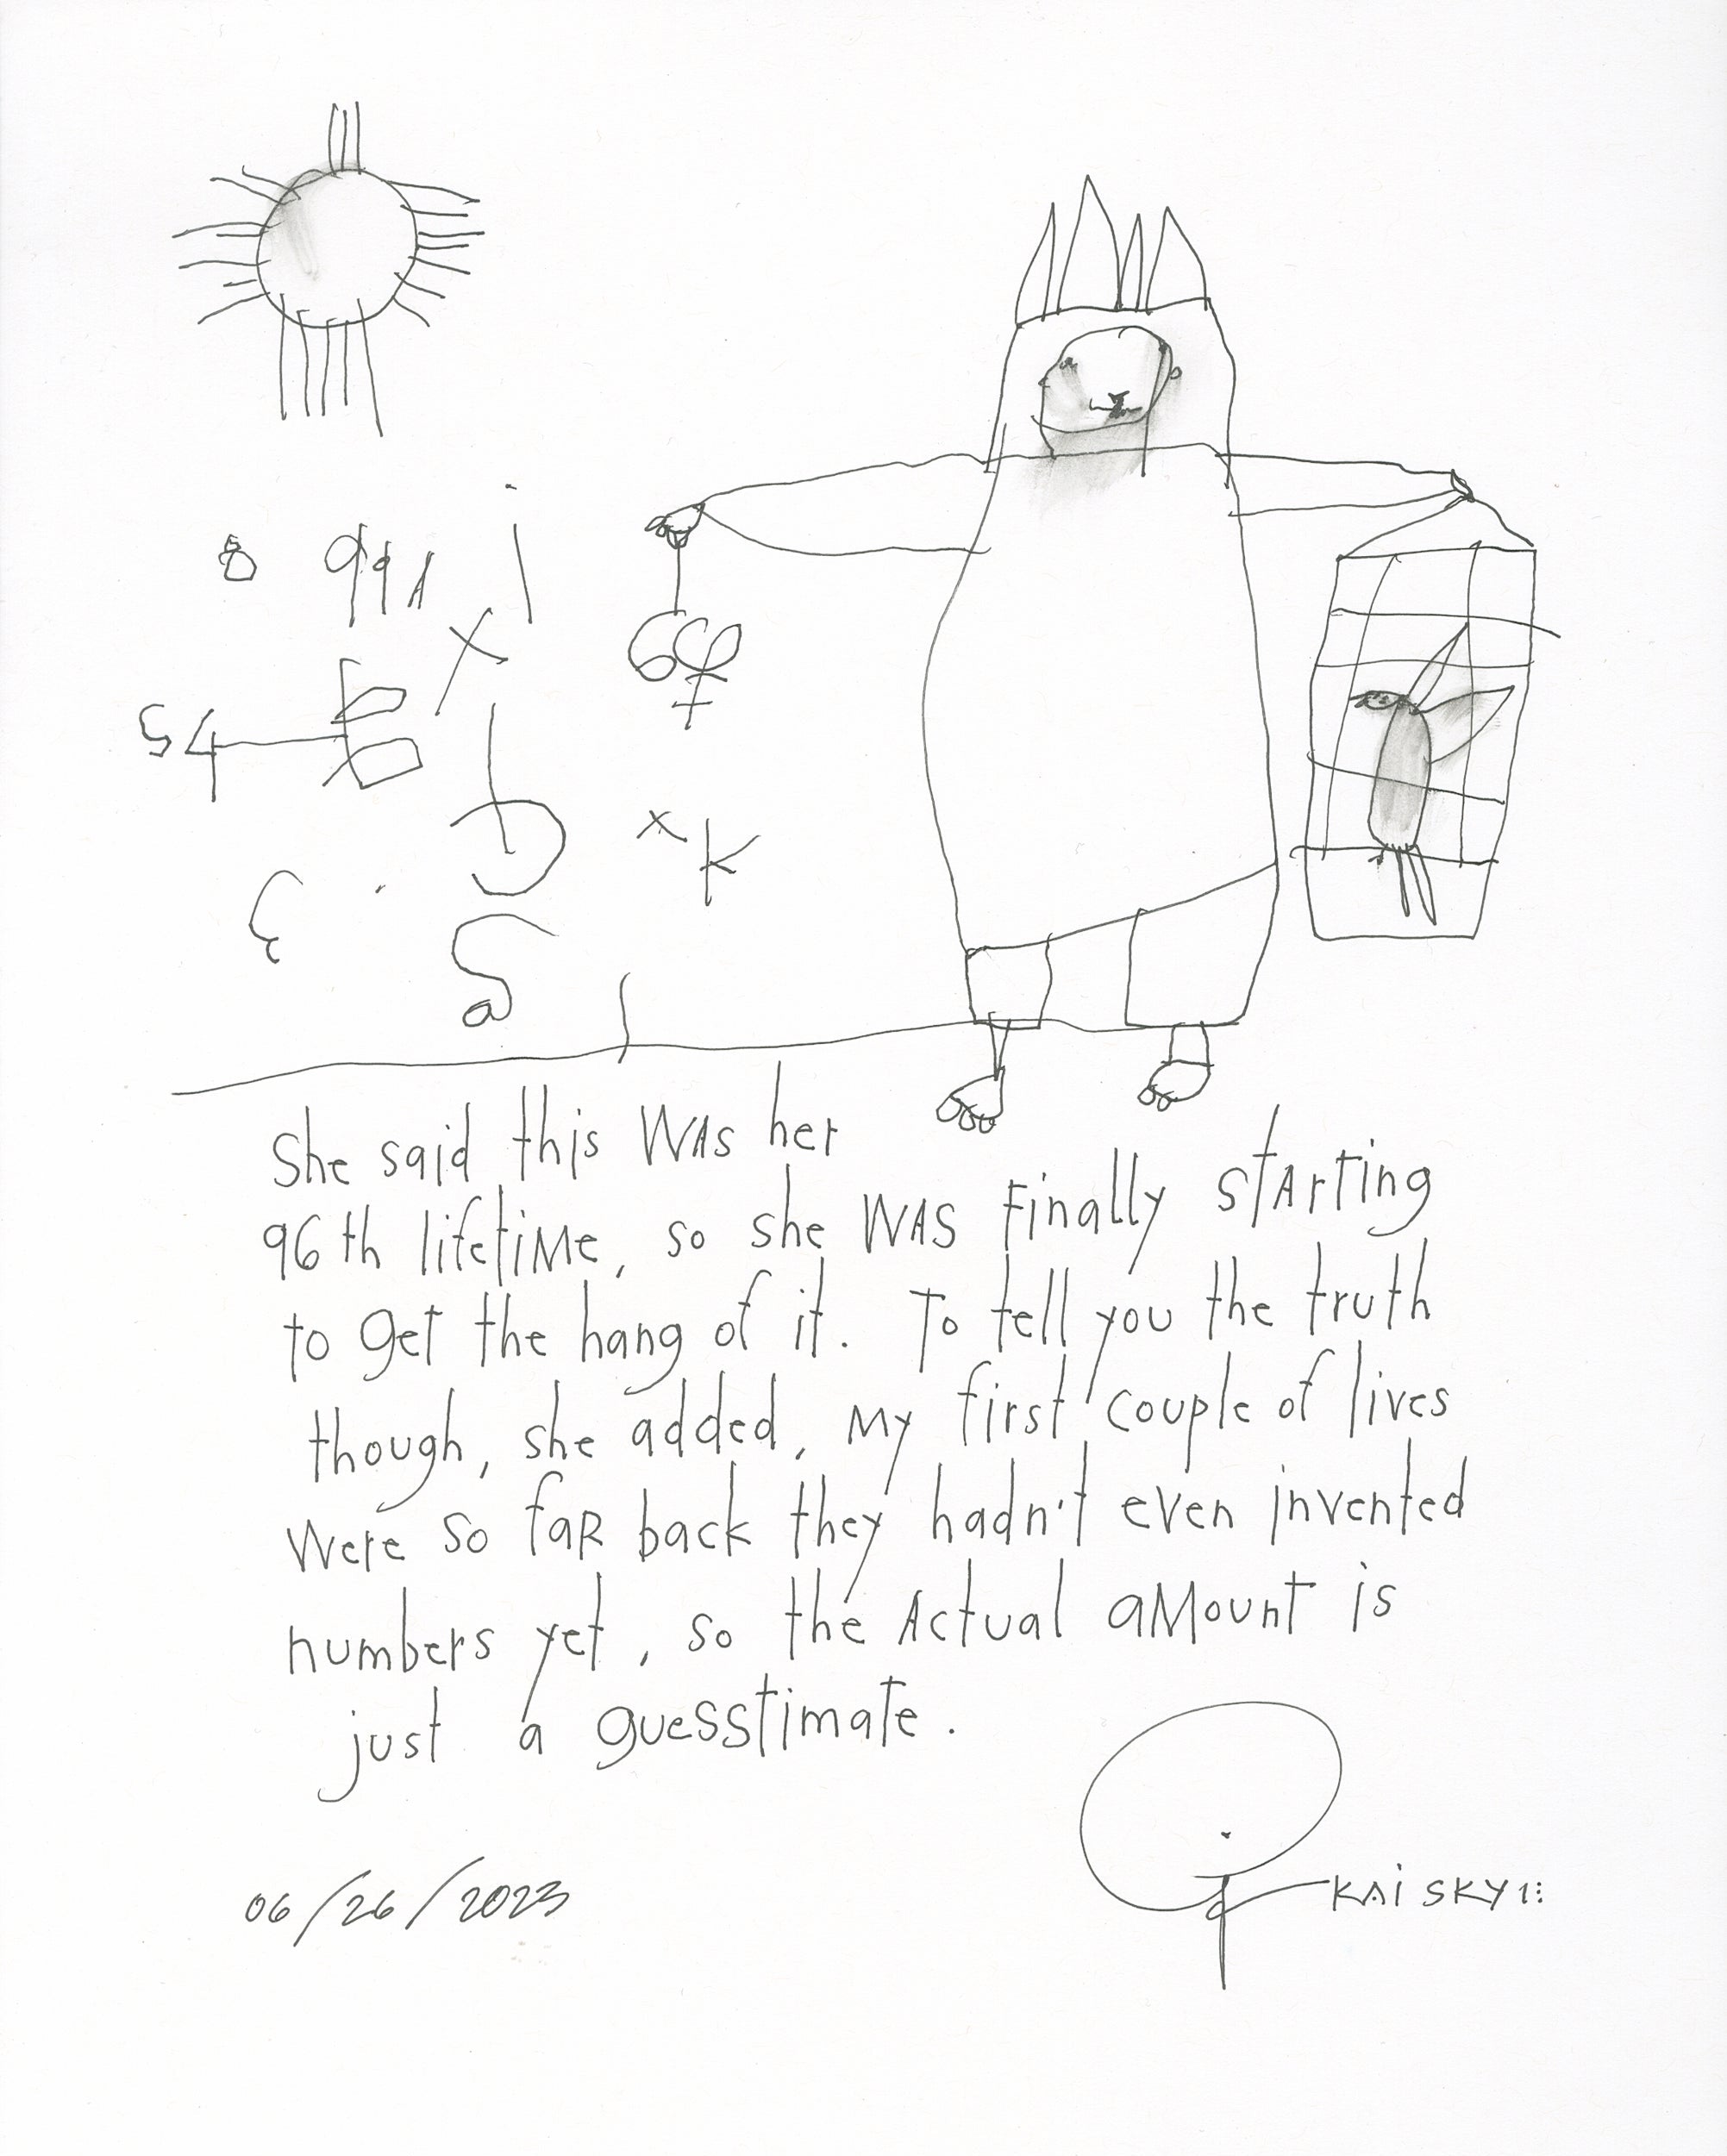 8 991
54
x K
She said this WAS her
96th lifetime, so she WAS finally starting
to get the hang of it. To tell you the truth
though, she added, my first couple of lives
were so far back they hadn't even invented
numbers yet, so the Actual aMount is
just a guesstimate.
06/26/2023
KAI SKY